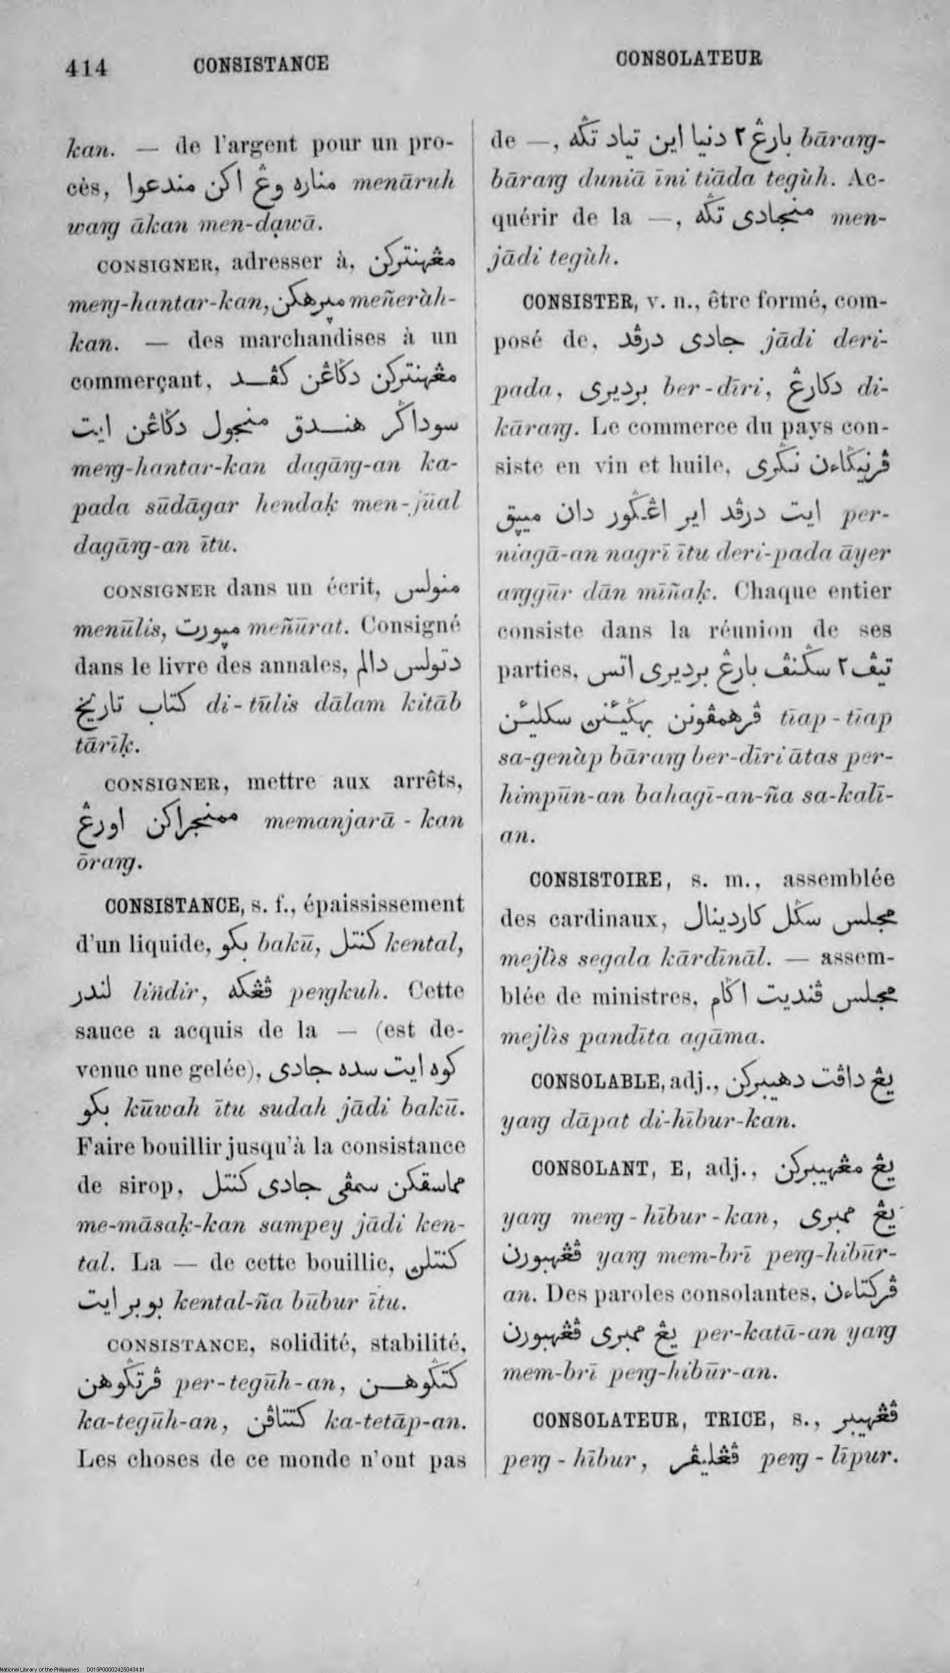 414 CONSISTANCE CONSOLATEUR
kan. — de l'argent pour un pro-
cès, مناره وڠ اكن مندعوا menāruh
waṟg ākan men-dạwā.
CONSIGNER, adresser à, مڠهنترکن
meṟg-hantar-kan, مڽرهکن meñeràh-
kan. — des marchandises à un
commerçant, مڠهنترکن دݢاڠن کڤد
سوداݢر هندق منجول دݢاڠن ايت
meṟg-hantar-kan dagāṟg-an ka-
pada sūdāgar hendaḳ men-jūal
dagāṟg-an ītu.
CONSIGNER dans un écrit, منولس
menūlis, مڽورت meñūrat. Consigné
dans le livre des annales, دتولس دالم
کتاب تاريخ di-tūlis dālam kitāb
tārīḳ.
CONSIGNER, mettre aux arrêts,
ممنجراکن اورڠ memanjarā-kan
ōraṟg.
CONSISTANCE, s. f., épaississement
d'un liquide, بکو bakū, کنتل kental,
لندر lindir, ڤڠکه peṟgkuh. Cette
sauce a acquis de la — (est de-
venue une gelée), کوه ايت سده جادی
بکو kūwah ītu sudah jādi bakū.
Faire bouillir jusqu'à la consistance
de sirop, مماسقکن سمڤی جادی کنتل
me-māsaḳ-kan sampey jādi ken-
tal. La — de cette bouillie, کنتلن
بوبر ايت kental-ña būbur ītu.
CONSISTANCE, solidité, stabilité,
ڤرتݢوهن per-tegūh-an, کتݢوهن
ka-tegūh-an, کتتاڤن ka-tetāp-an.
Les choses de ce monde n'ont pas
de —, بارڠ٢ دنيا اين تياد تݢه bāraṟg-
bāraṟg duniā īni tiāda tegùh. Ac-
quérir de la —, منجادی تݢه men-
jādi tegùh.
CONSISTER, v. n., être formé, com-
posé de, جادی درڤد jādi deri-
pada, برديری ber-dīri, دکارڠ di-
kāraṟg. Le commerce du pays con-
siste en vin et huile, ڤرنيݢاءن نݢری
ايت درڤد اير اڠݢور دان ميڽق per-
niagā-an nagrī ītu deri-pada āyer
aṟggūr dān mīñaḳ. Chaque entier
consiste dans la réunion de ses
parties, تيڤ٢ سݢنڤ بارڠ برديری اتس
ڤرهمڤونن بهݢيئنڽ سکليئن tīap-tīap
sa-genàp bāraṟg ber-dīri ātas per-
himpūn-an bahagī-an-ña sa-kalī-
an.
CONSISTOIRE, s. m., assemblée
des cardinaux, مجلس سݢل کاردينال
mejlìs segala kārdīnāl. — assem-
blée de ministres, مجلس ڤنديت اݢام
mejlìs pandīta agāma.
CONSOLABLE, adj., يڠ داڤت دهيبرکن
yaṟg dāpat di-hībur-kan.
CONSOLANT, E, adj., يڠ مڠهيبرکن
yaṟg meṟg-hībur-kan, يڠ ممبری
ڤڠهيبورن yaṟg mem-brī peṟg-hibūr-
an. Des paroles consolantes, ڤرکتاءن
يڠ ممبری ڤڠهيبورن per-katā-an yaṟg
mem-brī peṟg-hibūr-an.
CONSOLATEUR, TRICE, s., ڤڠهيبر
peṟg-hībur, ڤڠليڤر peṟg-līpur.
National Library of the Philippines